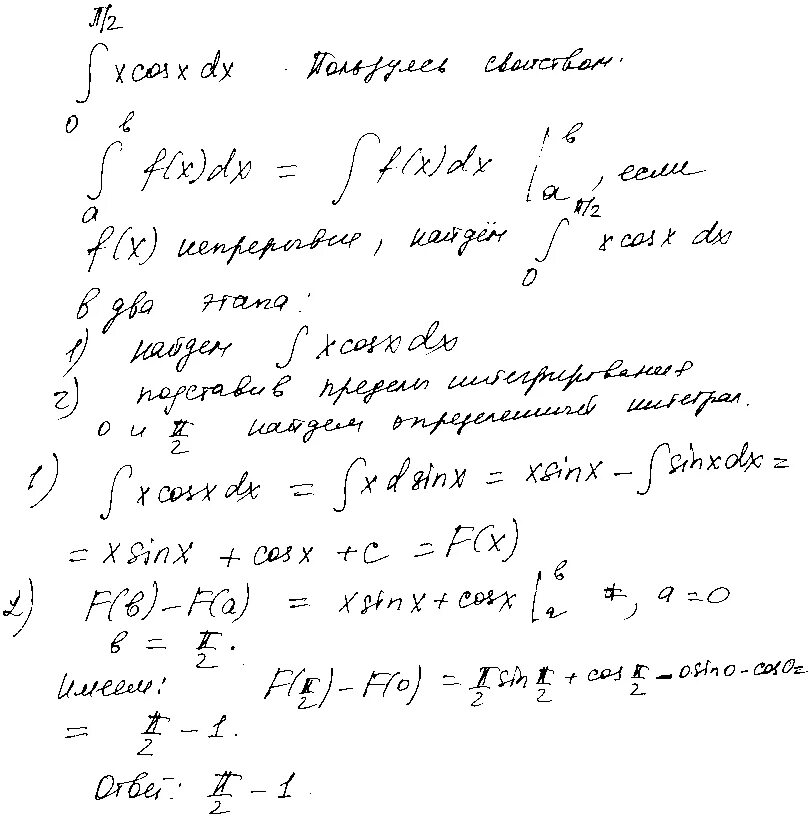 ∫₀^π/2 x cos x dx. Пользуясь свойством.
∫ₐ^в f(x)dx = ∫ f(x)dx |ₐ^в, если
f(x) непрерывна, найдём ∫₀^π/2 x cosx dx
в два этапа:
1) найдем ∫ x cosx dx
2) подставив пределы интегрирования
0 и π/2 найдем определенный интеграл.
1) ∫ x cosx dx = ∫ x d sinx = x sinx − ∫ sinx dx =
= x sinx + cosx + c = F(x)
2) F(в) − F(a) = x sinx + cosx |ₐ^в , a = 0
в = π/2.
Имеем: F(π/2) − F(0) = π/2 sin π/2 + cos π/2 − 0 sin 0 − cos 0 =
= π/2 − 1.
Ответ: π/2 − 1.